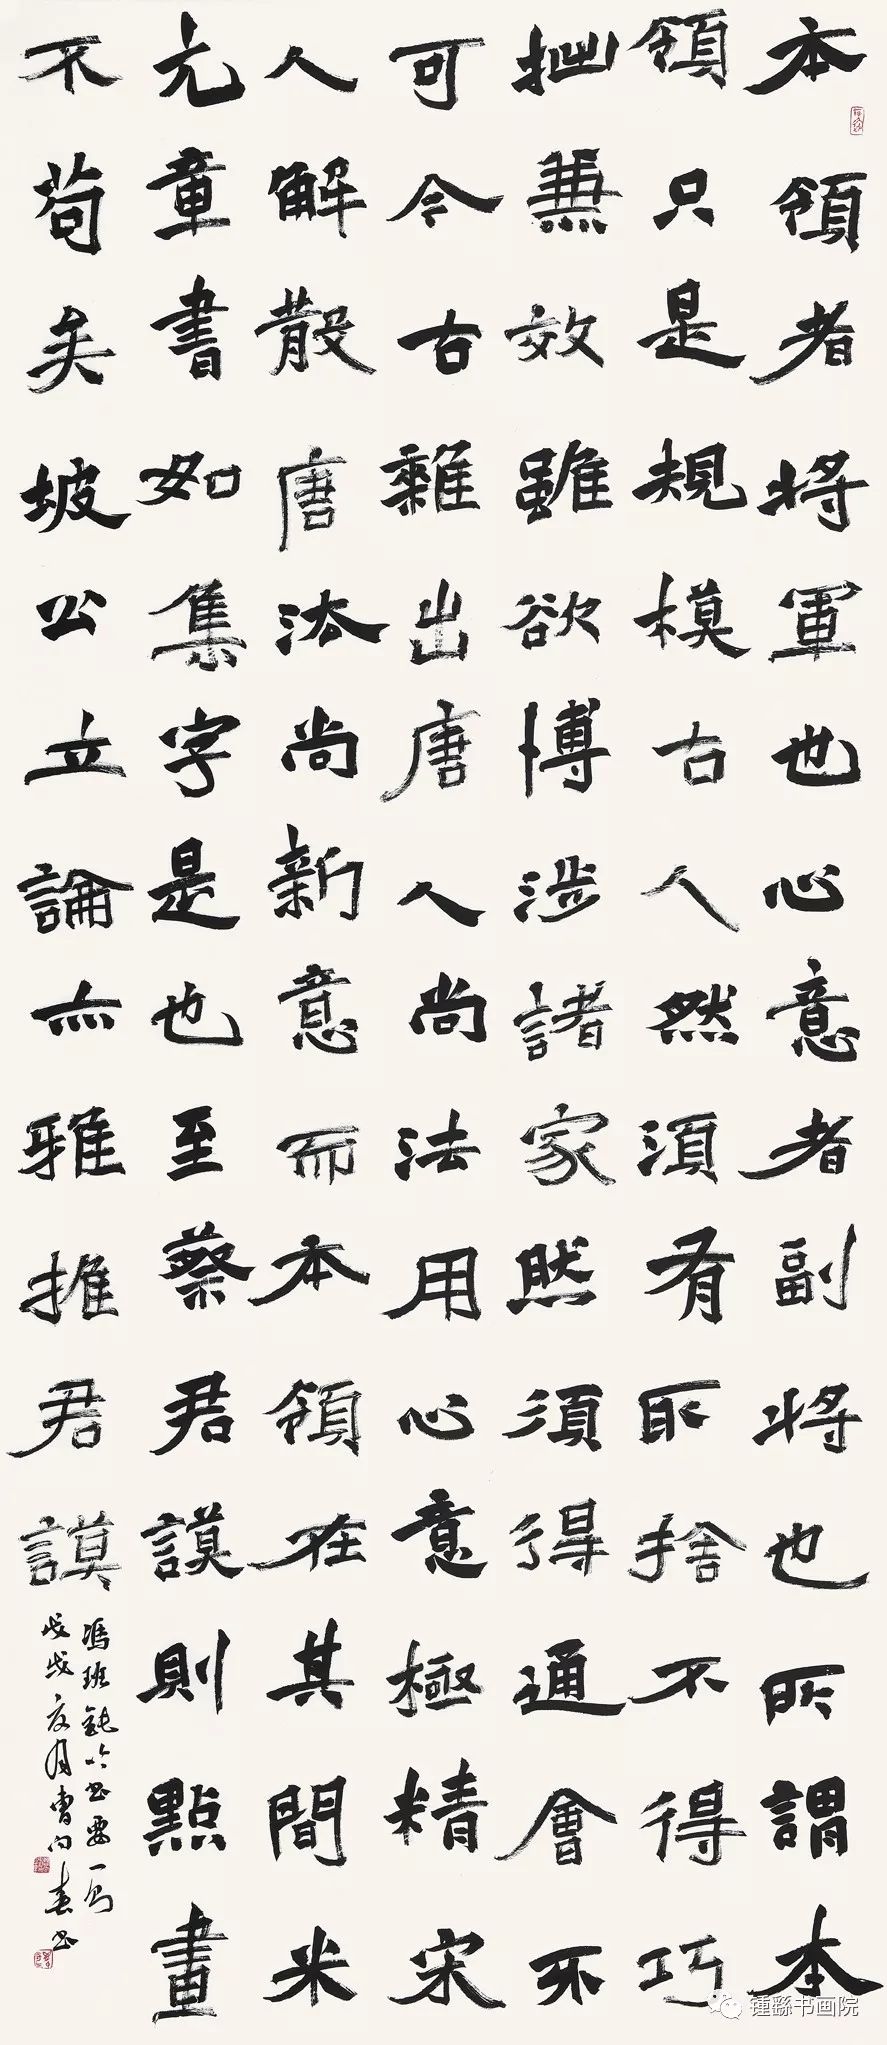 本領者將軍也心意者副將也所謂本
領只是規模古人然須有取捨不得巧
拙兼效雖欲博涉諸家然須得通會不
可今古雜出唐人尚法用心意極精宋
人解散唐法尚新意而本領在其間米
元章書如集字是也至蔡君謨則點畫
不苟矣坡公立論亦雅推君謨
馮班鈍吟書要一則
戊戌夏月曹向春書
锺繇书画院